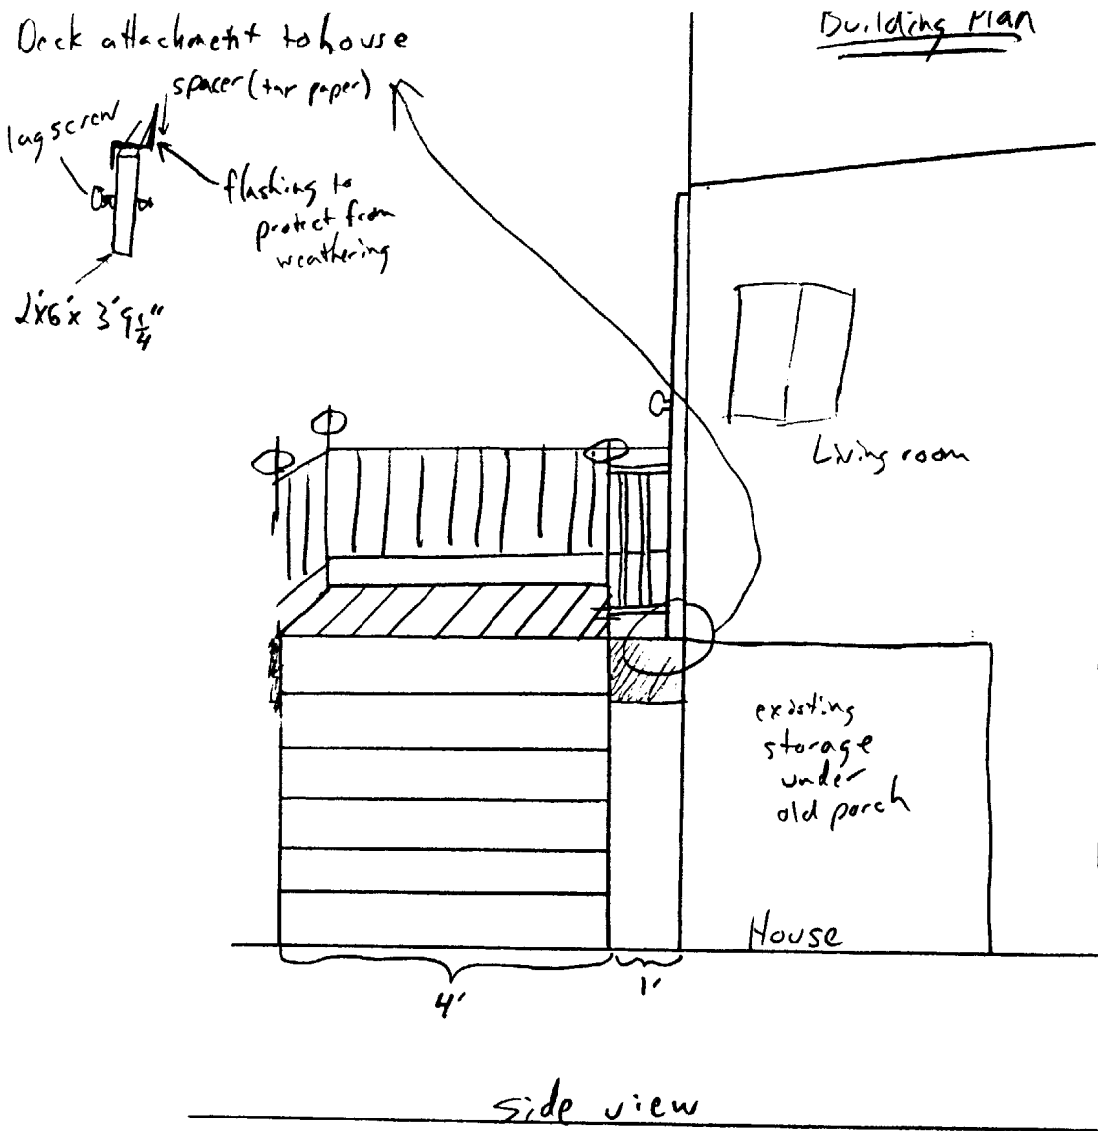 Building Plan
Deck attachment to house
spacer (tar paper)
lag screw
flashing to
protect from
weathering
2"x6"x 3' 9 1/4"
Living room
existing
storage
under
old porch
House
4'
1'
side view